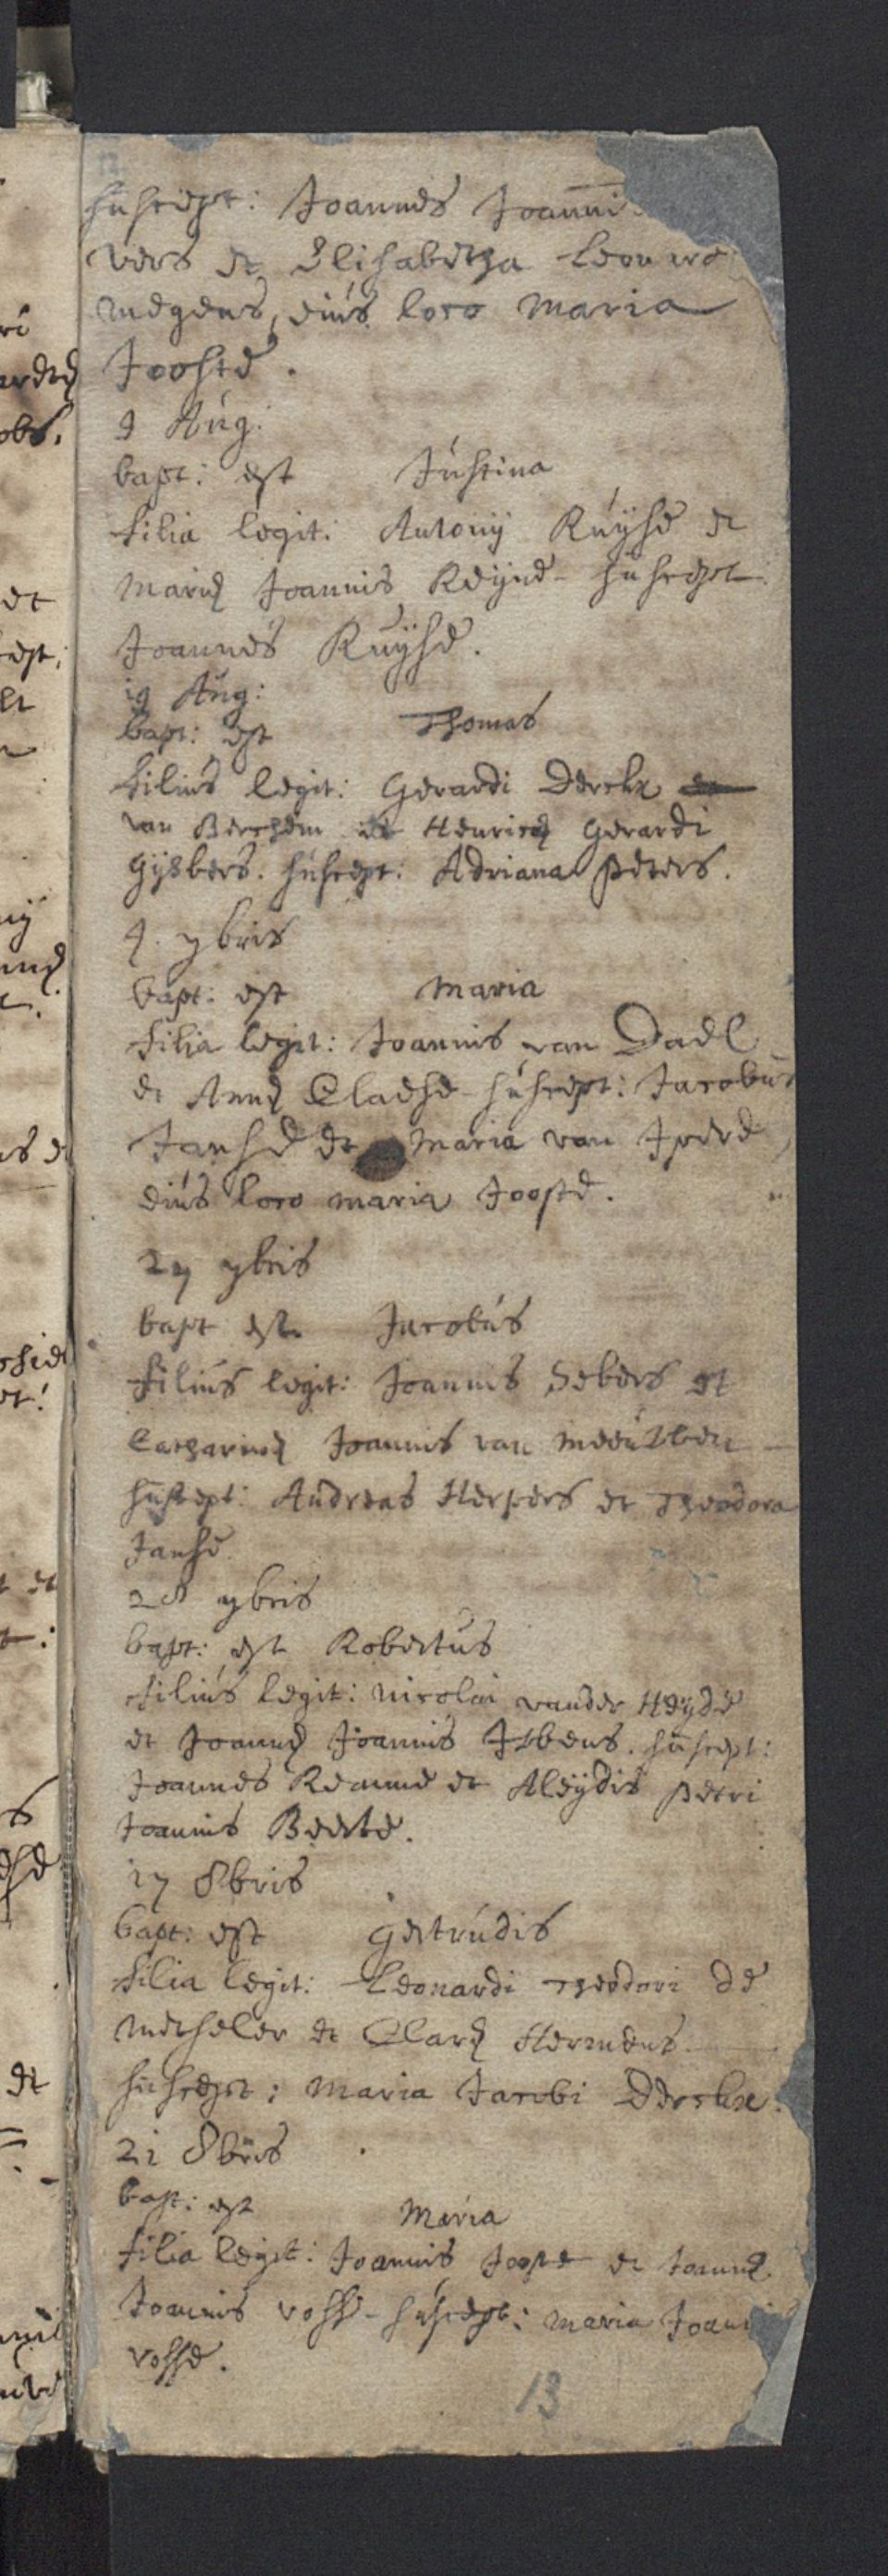 suscept: Joannes Joanni
vers et Elisabetha Leonard
megens, eius loco Maria
Jooste.
9 Aug:
bapt: est Justina
filia legit: Antonij Ruijse et
Mariæ Joannis Reijne - suscept:
Joannes Ruijse.
19 Aug:
bapt: est Thomas
filius legit: Gerardi Dercks
van Berchem et Henricæ Gerardi
Gijsbers. suscept: Adriana Peters.
4. 7bris
bapt: est Maria
filia legit: Joannis van Dael
et Annæ Claesse - suscept: Jacobus
Janse et Maria van
eius loco Maria Jooste.
27 7bris
bapt est Jacobus
filius legit: Joannis Sebers et
Catharinæ Joannis van
suscept: Andreas Herpers et Theodora
Janse
28 7bris
bapt: est Robertus
filius legit: Nicolai vander Heijde
et Joannæ Joannis Isbens. suscept:
Joannes et Aleijdis Petri
Joannis Beerte.
17 8bris
bapt: est Gertrudis
filia legit: Leonardi Theodori de
Metseler et Claræ Hermens.
suscept: Maria Jacobi Derckse.
21 8bris
bapt: est Maria
filia legit: Joannis Jooste et Joannæ
Joannis Vosse - suscept: Maria Joanni
Vosse.
13